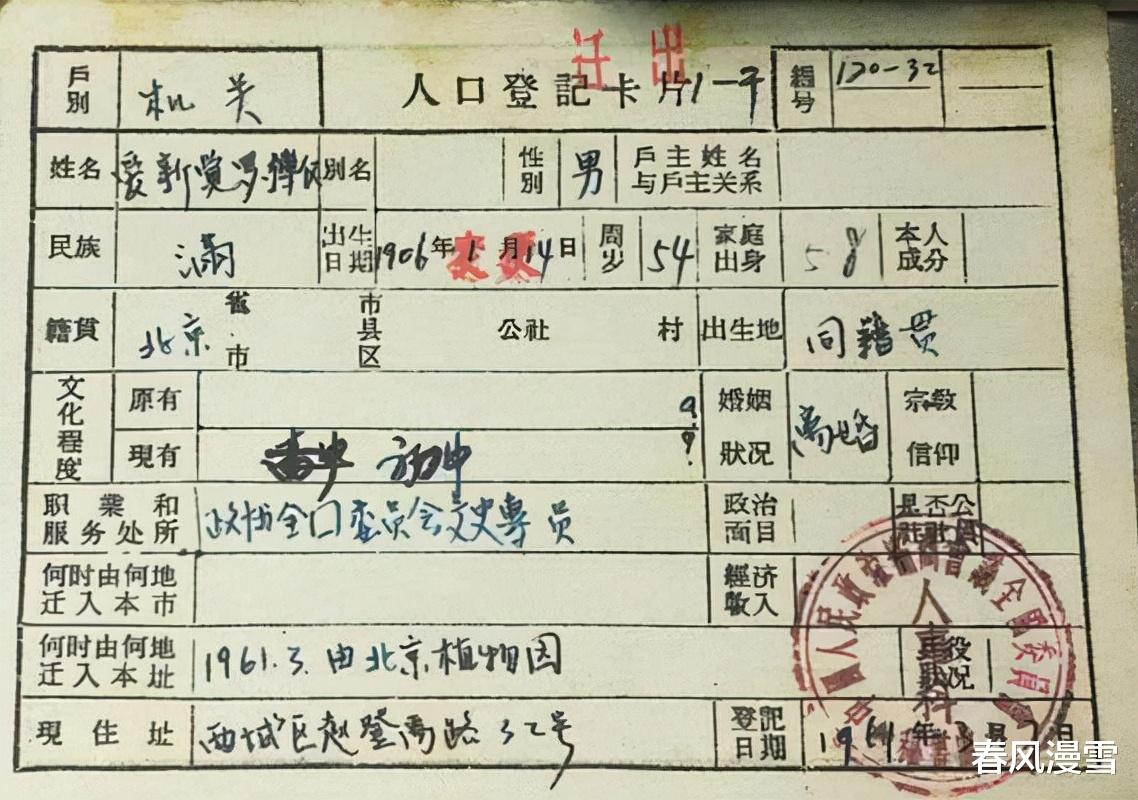 迁出
户别 机关 人口登記卡片 编号 120-32
姓名 爱新覚罗 别名 性别 男 户主姓名与户主关系
民族 满 出生日期 1906年1月14日 周岁 54 家庭出身 本人成分
籍貫 北京 省市 市县区 公社 村 出生地 同籍贯
文化程度 原有 婚姻狀况 离婚 宗教信仰
現有 初中
职業和服务处所 政协全囗委员会文史專员 政治面目 是否公社社員
何时由何地迁入本市 經济收入
何时由何地迁入本址 1961.3.由北京植物园 兵役狀况
現住址 西城区赵登禹路32号 登記日期 年 月 日
人事科
春风漫雪